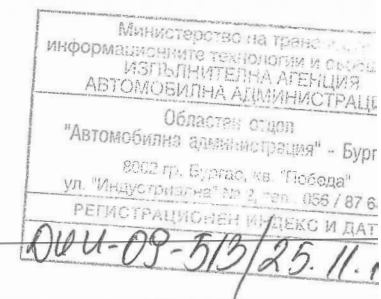 Министерство на
информационните технологии и
ИЗПЪЛНИТЕЛНА АГЕНЦИЯ
АВТОМОБИЛНА АДМИНИСТРАЦИ
Областен отдел
"Автомобилна администрация" - Бург
8002 гр. Бургас, кв. "Победа"
ул. "Индустриална" № 2, тел. 056 / 87 6
РЕГИСТРАЦИОНЕН ИНДЕКС И ДАТ
-09-513/25.11.